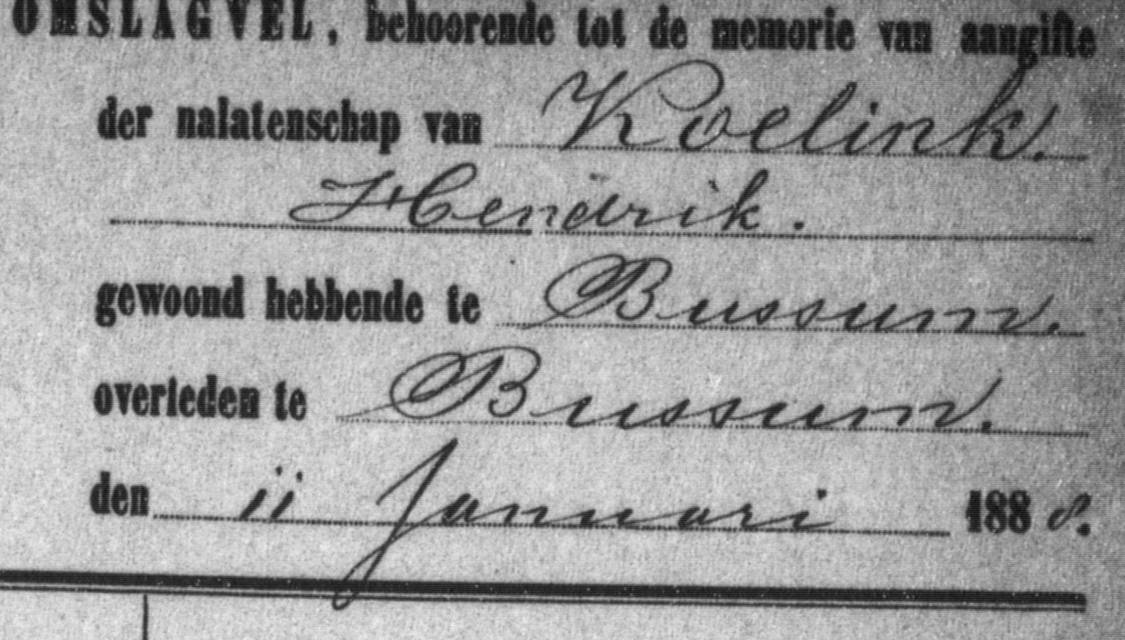 OMSLAGVEL, behoorende tot de memorie van aangifte
der nalatenschap van Koelink.
Hendrik.
gewoond hebbende te Bussum.
overleden te Bussum.
den ii Januari 1888.